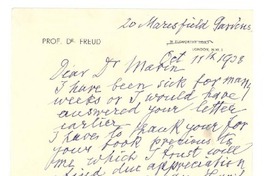 20 Maresfield Gardens
PROF. DR. FREUD
LONDON, N.W.3.
Oct 15th 1938
Dear Dr
I have been sick for many
weeks or I would have
answered your letter
earlier
I have to thank you for
your book
me which I trust will
find due appreciation